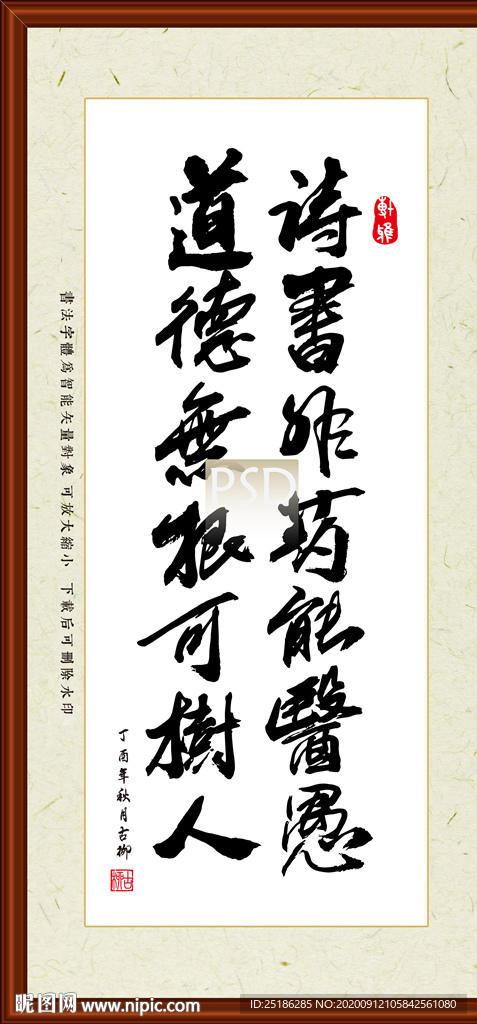 軒雅
诗書非药能醫愚
道德無根可樹人
丁酉年秋月古柳
古柳
書法字體爲智能矢量對象 可放大縮小 下載后可刪除水印
PSD
昵图网 www.nipic.com
ID:25186285 NO:20200912105842561080